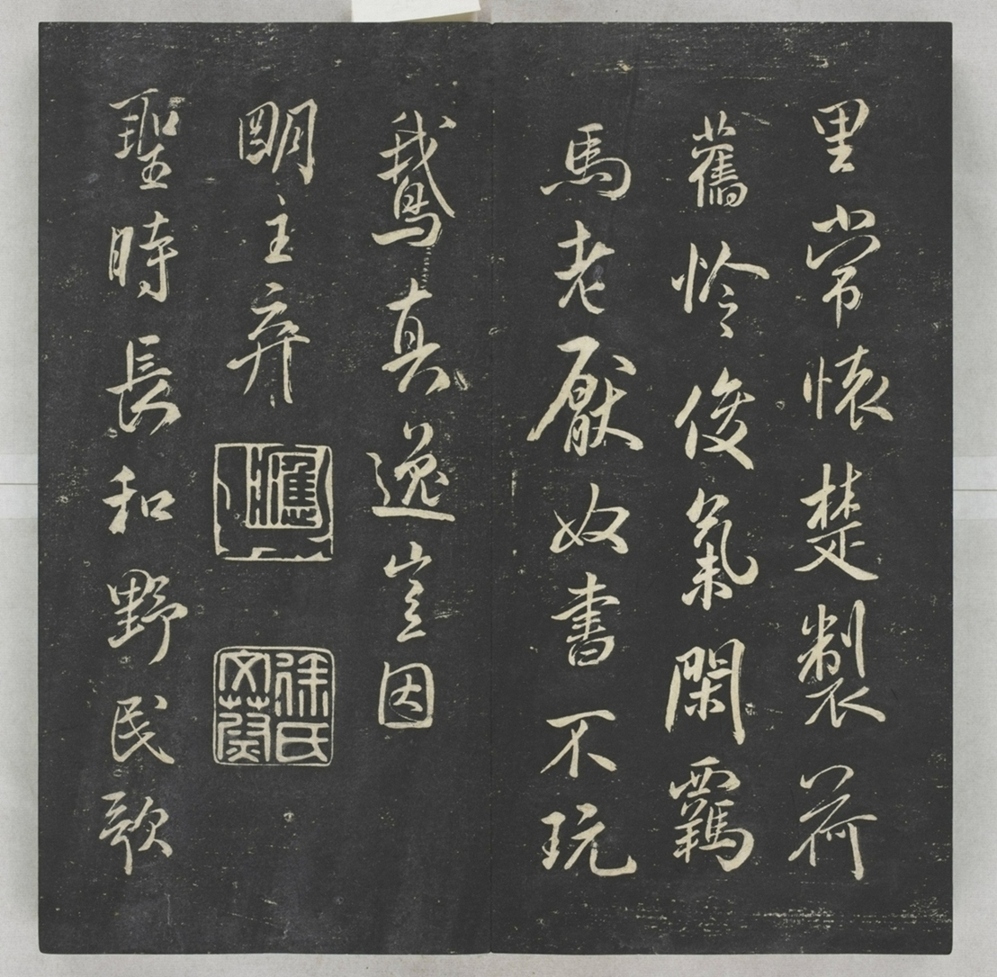 里常懐楚製荷
舊怜俊氣閑羈
馬老厭奴書不玩
鵝真逸豈因
明主弃
徐氏文
聖時長和野民歌